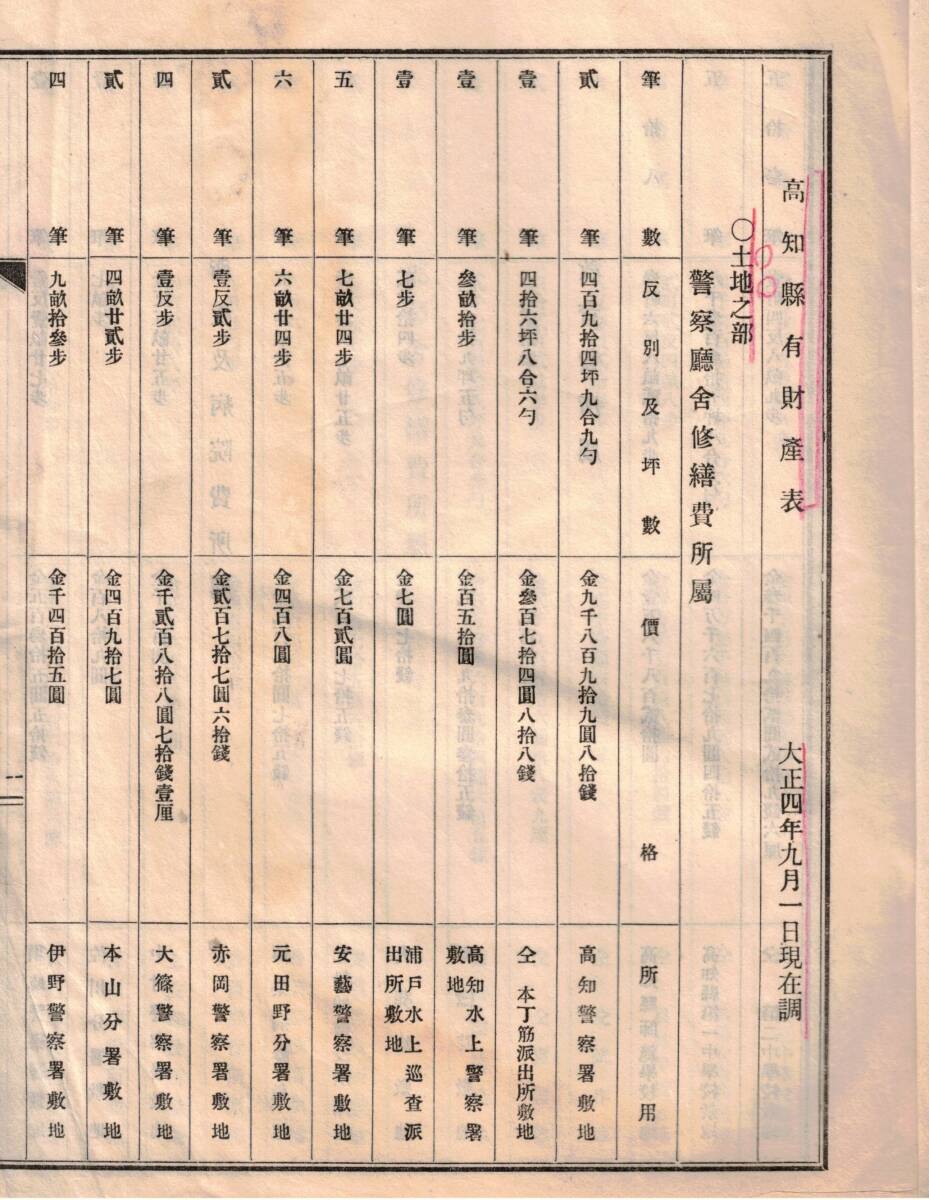 高知縣有財產表 大正四年九月一日現在調
〇土地之部
警察廳舍修繕費所屬
筆數 反別及坪數 價格 所用
貳筆 四百九拾四坪九合九勺 金九千八百九拾九圓八拾錢 高知警察署敷地
壹筆 四拾六坪八合六勺 金參百七拾四圓八拾八錢 仝本丁筋派出所敷地
壹筆 參畝拾步 金百五拾圓 高知水上警察署敷地
壹筆 七步 金七圓 浦戶水上巡查派出所敷地
五筆 七畝廿四步 金七百貳圓 安藝警察署敷地
六筆 六畝廿四步 金四百八圓 元田野分署敷地
貳筆 壹反貳步 金貳百七拾七圓六拾錢 赤岡警察署敷地
四筆 壹反步 金千貳百八拾八圓七拾錢壹厘 大篠警察署敷地
貳筆 四畝廿貳步 金四百九拾七圓 本山分署敷地
四筆 九畝拾參步 金千四百拾五圓 伊野警察署敷地
一